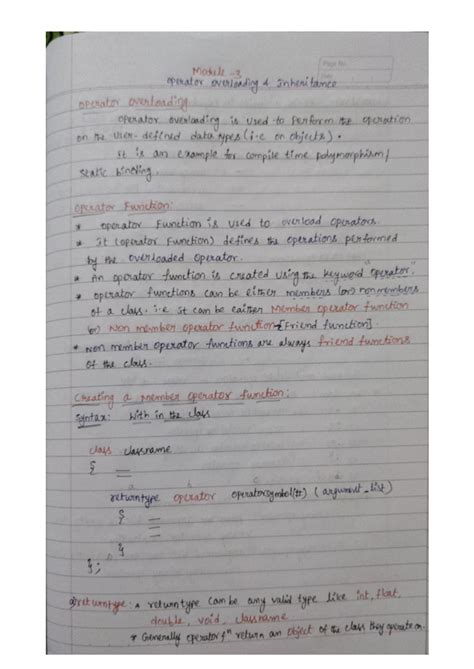 Page No.
Date
Module - 3
operator overloading & Inheritance
operator overloading
operator overloading is used to perform the operation
on the user-defined data types (i.e on objects).
It is an example for compile time polymorphism/
static binding.
operator Function:
* operator Function is used to overload operators.
* it (operator Function) defines the operations performed
by the overloaded operator.
* An operator function is created using the keyword "operator".
* operator functions can be either members (or) nonmembers
of a class. i.e it can be eaither Member operator function
(or) Non member operator function [Friend function].
* Non member operator functions are always friend functions
of the class.
Creating a member operator function:
Syntax: With in the class
class classname
{
returntype operator operatorsymbol(#) (argument_list)
{
}
};
a) returntype: * returntype can be any valid type like int, float,
double, void, classname
* Generally operator fⁿ return an object of the class they operate on.